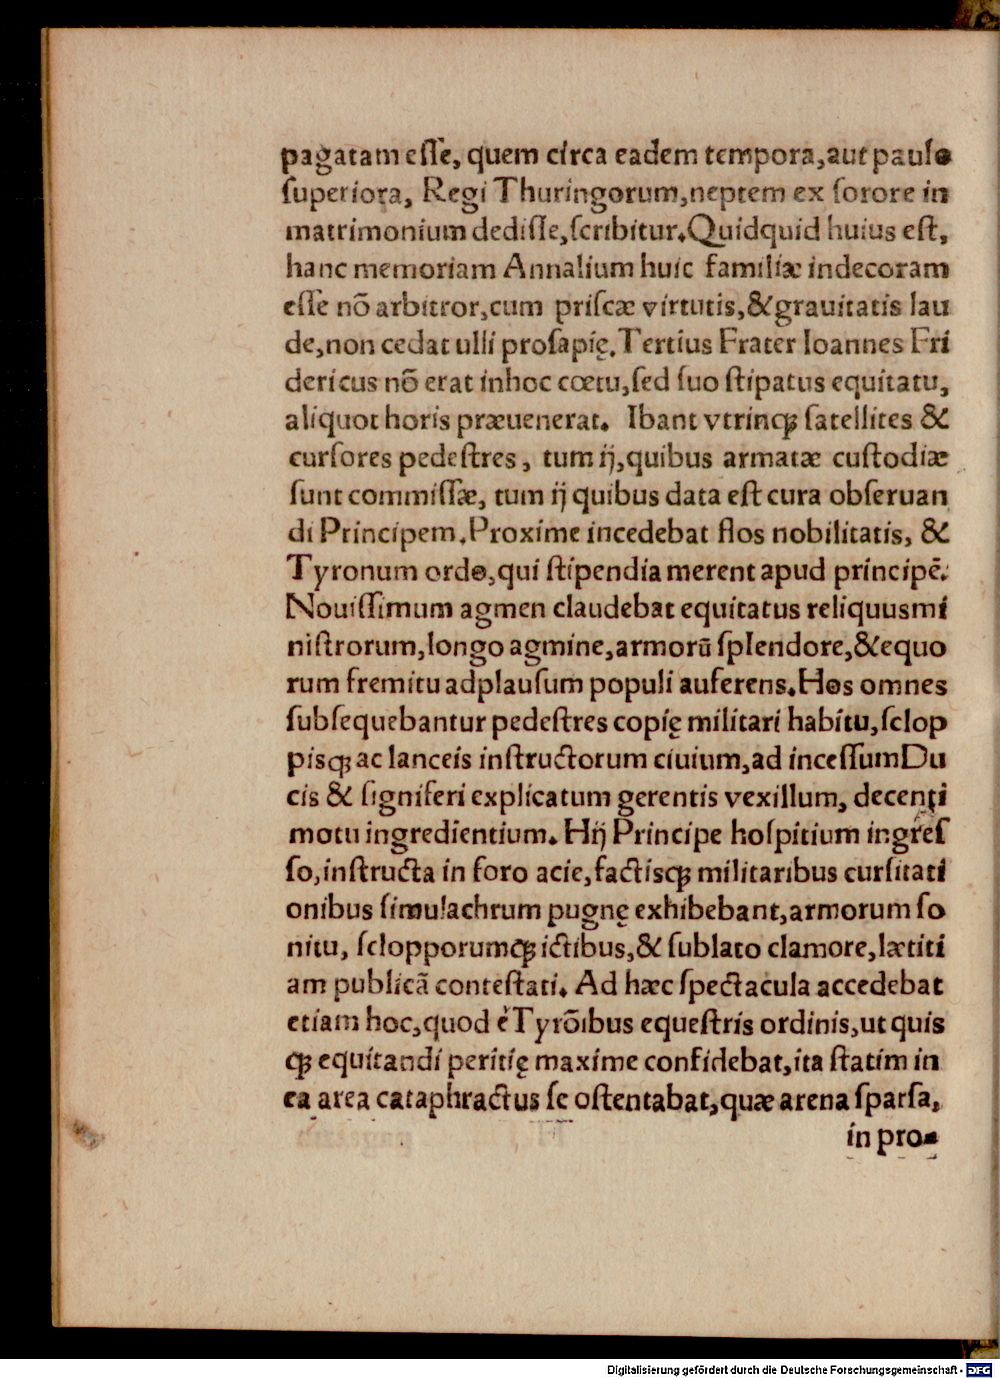 pagatam eſſe, quem circa eadem tempora, aut paulo
ſuperiora, Regi Thuringorum, neptem ex ſorore in
matrimonium dediſſe, ſcribitur. Quidquid huius eſt,
hanc memoriam Annalium huic familiæ indecoram
eſſe nõ arbitror, cum priſcæ virtutis, & grauitatis lau
de, non cedat ulli proſapię. Tertius Frater Ioannes Fri
dericus nõ erat inhoc cœtu, ſed ſuo ſtipatus equitatu,
aliquot horis præuenerat. Ibant vtrinqꝫ ſatellites &
curſores pedeſtres, tum ij, quibus armatæ cuſtodiæ
ſunt commiſſæ, tum ij quibus data eſt cura obſeruan
di Principem. Proxime incedebat flos nobilitatis, &
Tyronum ordo, qui ſtipendia merent apud principẽ.
Nouiſſimum agmen claudebat equitatus reliquusmi
niſtrorum, longo agmine, armorũ ſplendore, & equo
rum fremitu adplauſum populi auferens. Hos omnes
ſubſequebantur pedeſtres copię militari habitu, ſclop
pisqꝫ ac lanceis inſtructorum ciuium, ad inceſſum Du
cis & ſigniferi explicatum gerentis vexillum, decenti
motu ingredientium. Hij Principe hoſpitium ingreſ
ſo, inſtructa in foro acie, factisqꝫ militaribus curſitati
onibus ſimulachrum pugnę exhibebant, armorum ſo
nitu, ſclopporumqꝫ ictibus, & ſublato clamore, lætiti
am publicã conteſtati. Ad hæc ſpectacula accedebat
etiam hoc, quod è Tyrõibus equeſtris ordinis, ut quis
qꝫ equitandi peritię maxime confidebat, ita ſtatim in
ea area cataphractus ſe oſtentabat, quæ arena ſparſa,
in pro-
Digitalisierung gefördert durch die Deutsche Forschungsgemeinschaft - DFG